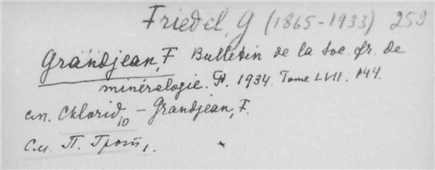 Friedel, G (1865-1933) 253
Grandjean, F Bulletin de la Soc fr. de
minéralogie. P. 1934. Tome LVII. №4.
см. Chlorid 10 - Grandjean, F.
См. П. Грот 1.
×